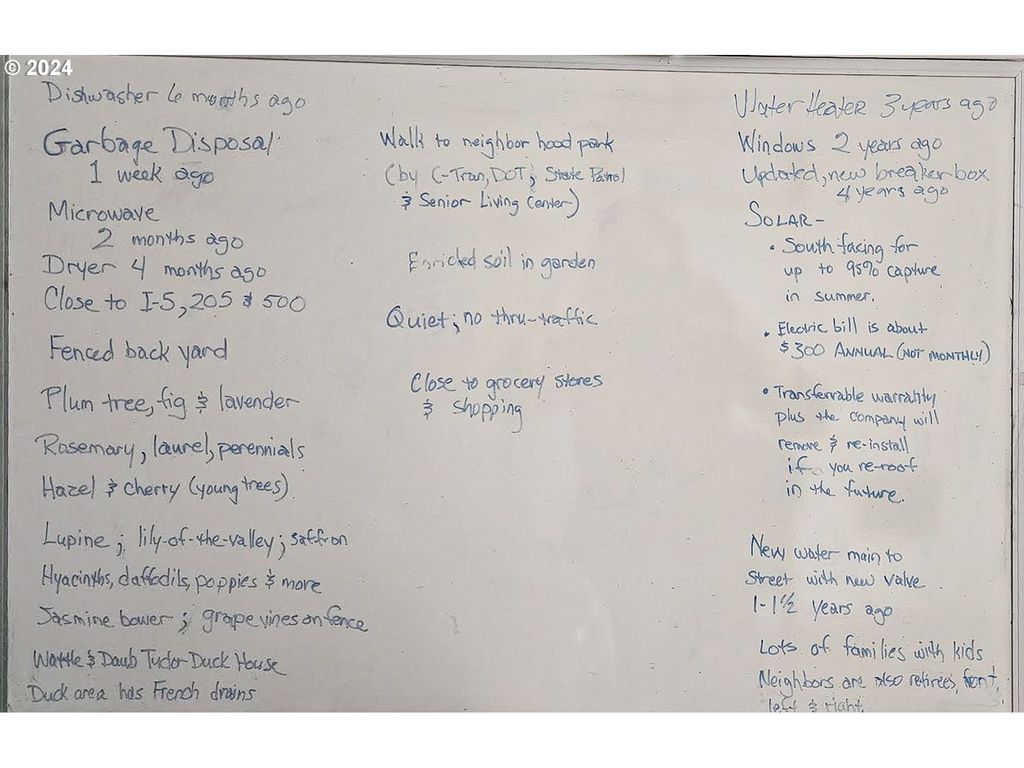 © 2024
Dishwasher 6 months ago
Garbage Disposal
1 week ago
Microwave
2 months ago
Dryer 4 months ago
Close to I-5, 205 & 500
Fenced back yard
Plum tree, fig & lavender
Rosemary, laurel, perennials
Hazel & cherry (young trees)
Lupine ; lily-of-the-valley ; saffron
Hyacinths, daffodils, poppies & more
Jasmine bower ; grapevines on fence
Wattle & Daub Tudor Duck House
Duck area has French drains
Walk to neighbor hood park
(by C-Tran, DOT ; State Patrol
& Senior Living Center)
Enriched soil in garden
Quiet ; no thru-traffic
Close to grocery stores
& shopping
Water Heater 3 years ago
Windows 2 years ago
Updated, new breaker box
4 years ago
SOLAR-
• South facing for
up to 95% capture
in summer.
• Electric bill is about
$300 ANNUAL (NOT MONTHLY)
• Transferrable warranty
plus the company will
remove & re-install
if you re-roof
in the future.
New water main to
street with new valve
1-1½ years ago
Lots of families with kids
Neighbors are also retirees, front,
left & right.